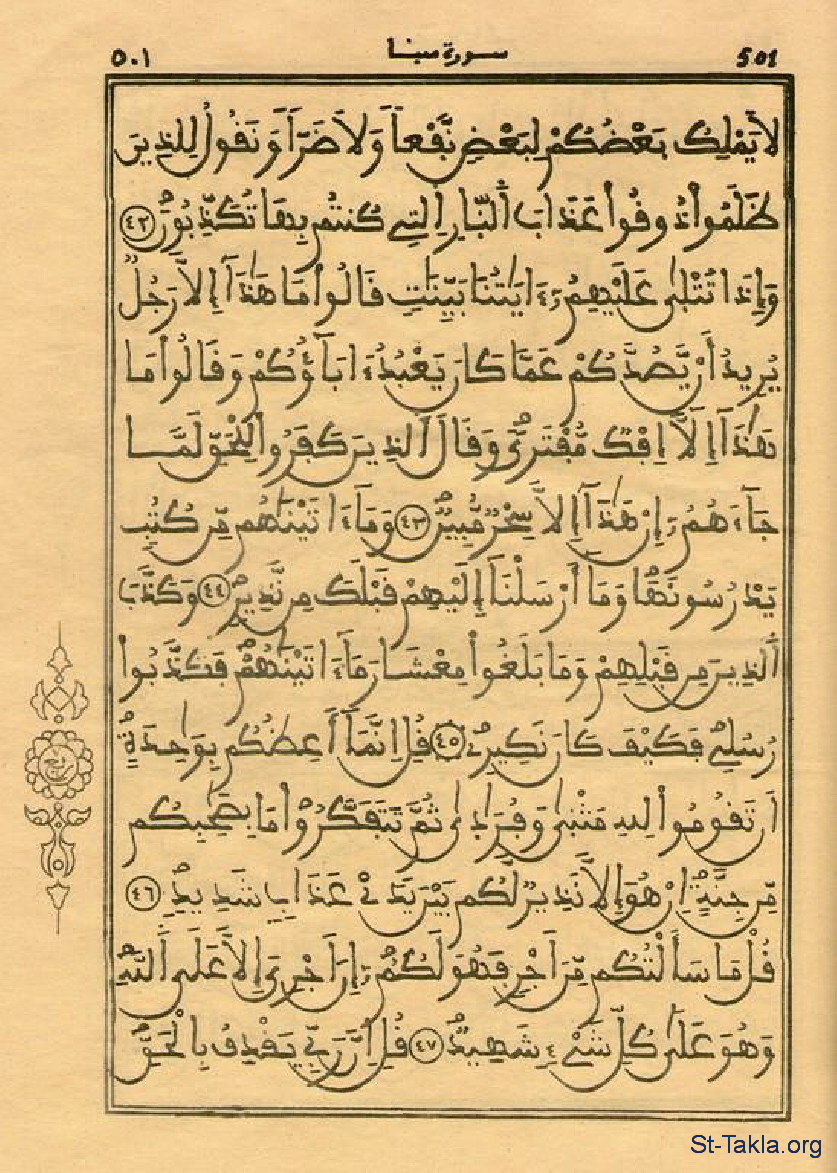 ٥٠١ سورة سبأ 501
لَا يَمْلِكُ بَعْضُكُمْ لِبَعْضٍ نَّفْعاً وَلَا ضَرّاً وَنَقُولُ لِلذِينَ
ظَلَمُواْ ذُوقُواْ عَذَابَ اَ۬لنّ۪ارِ اِ۬لتِے كُنتُم بِهَا تُكَذِّبُونَۖ ٤٢
وَإِذَا تُتْل۪ىٰ عَلَيْهِمُۥٓ ءَايَٰتُنَا بَيِّنَٰتٖ قَالُواْ مَا هَٰذَآ إِلَّا رَجُلٞ
يُرِيدُ أَنْ يَّصُدَّكُمْ عَمَّا كَانَ يَعْبُدُ ءَابَآؤُكُمْ وَقَالُواْ مَا
هَٰذَآ إِلَّآ إِفْكٞ مُّفْتَرىٗۖ وَقَالَ اَ۬لذِينَ كَفَرُواْ لِلْحَقِّ لَمَّا
جَآءَهُمُۥٓ إِنْ هَٰذَآ إِلَّا سِحْرٞ مُّبِينٞۖ ٤٣ وَمَآ ءَاتَيْنَٰهُم مِّن كُتُبٖ
يَدْرُسُونَهَاۖ وَمَآ أَرْسَلْنَآ إِلَيْهِمْ قَبْلَكَ مِن نَّذِيرٖۖ ٤٤ وَكَذَّبَ
اَ۬لذِينَ مِن قَبْلِهِمْ وَمَا بَلَغُواْ مِعْشَارَ مَآ ءَاتَيْنَٰهُمْۖ فَكَذَّبُواْ
رُسُلِےۖ فَكَيْفَ كَانَ نَكِيرِۦۖ ٤٥ قُلِ اِنَّمَآ أَعِظُكُم بِوَٰحِدَةٍۖ
اَن تَقُومُواْ لِلهِ مَثْن۪ىٰ وَفُرَٰد۪ىٰ ثُمَّ تَتَفَكَّرُواْۖ مَا بِصَٰحِبِكُم
مِّن جِنَّةٍۖ اِنْ هُوَ إِلَّا نَذِيرٞ لَّكُم بَيْنَ يَدَےْ عَذَابٖ شَدِيدٖۖ ٤٦
قُلْ مَا سَأَلْتُكُم مِّنَ اَجْرٖ فَهُوَ لَكُمُۥٓۖ إِنَ اَجْرِيَ إِلَّا عَلَى اَ۬للَّهِۖ
وَهُوَ عَلَىٰ كُلِّ شَےْءٖ شَهِيدٞۖ ٤٧ قُلِ اِنَّ رَبِّے يَقْذِفُ بِالْحَقِّۖ
St-Takla.org